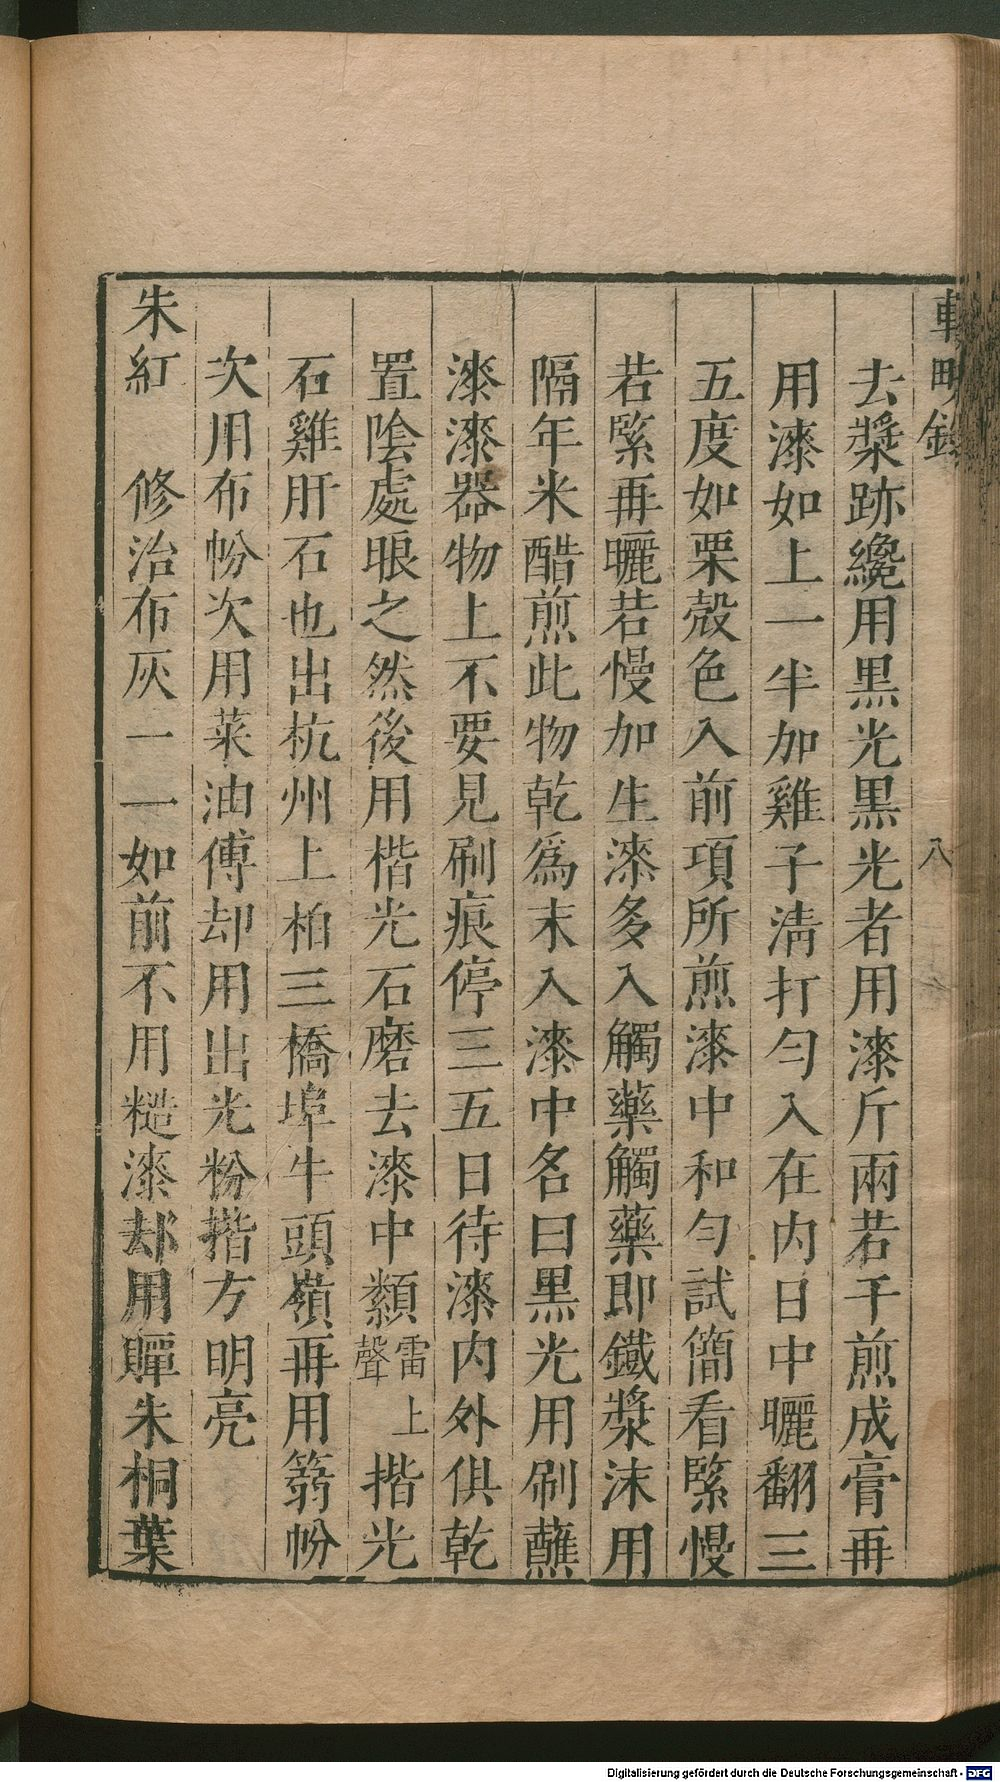 輟畊錄 八
去漿跡纔用黒光黒光者用漆斤兩若干煎成膏再
用漆如上一半加雞子淸打勻入在内日中曬翻三
五度如栗殼色入前項所煎漆中和勻試簡看緊慢
若緊再曬若慢加生漆多入觸藥觸藥即鐵漿沫用
隔年米醋煎此物乾爲末入漆中名曰黒光用刷蘸
漆漆器物上不要見刷痕停三五日待漆内外俱乾
置陰處晾之然後用楷光石磨去漆中纇雷聲上揩光
石雞肝石也出杭州上柏三橋埠牛頭嶺再用篛帉
次用布帉次用菜油傅却用出光粉揩方明亮
朱紅 修治布灰一一如前不用糙漆却用贉朱桐葉
Digitalisierung gefördert durch die Deutsche Forschungsgemeinschaft - DFG